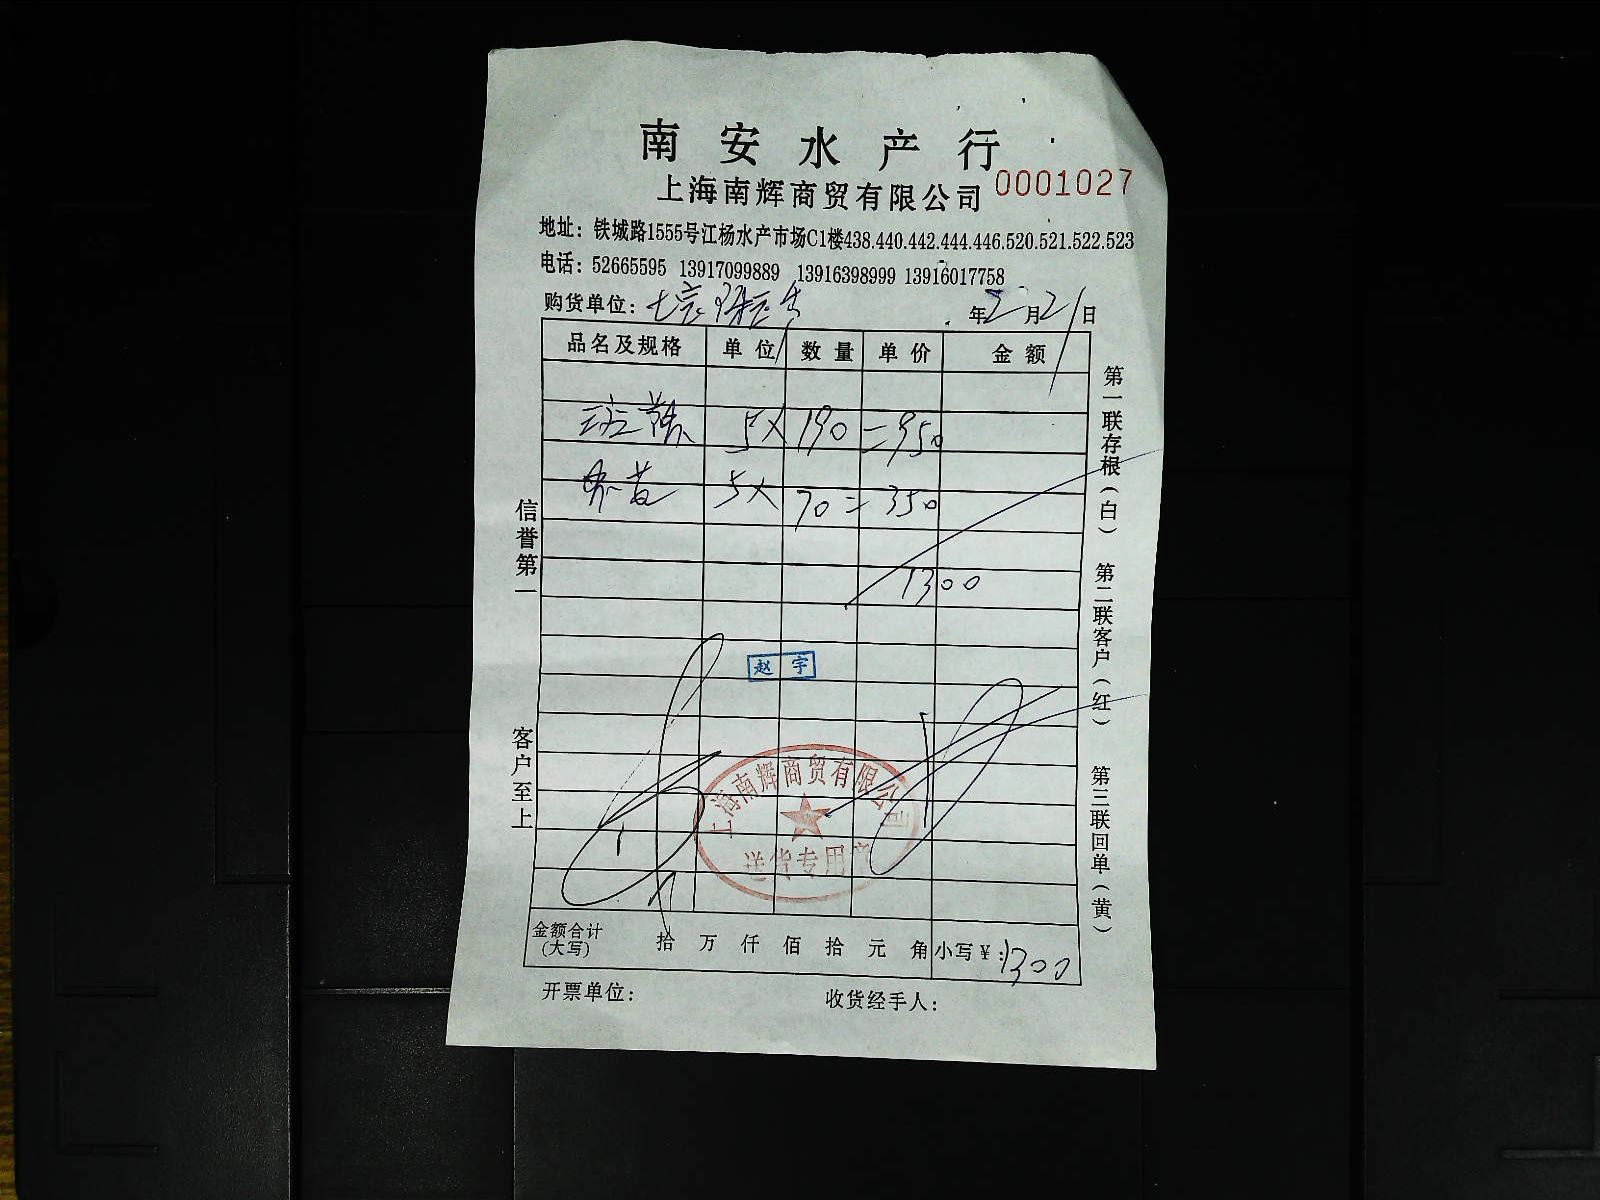 南安水产行
上海南辉商贸有限公司 0001027
地址：铁城路1555号江杨水产市场C1楼438.440.442.444.446.520.521.522.523
电话：52665595 13917099889 13916398999 13916017758
购货单位： 年 2 月 21 日
品名及规格 单位 数量 单价 金额
5× 190 = 950
5× 70 = 350
1300
赵宇
上海南辉商贸有限公司
送货专用章
金额合计(大写) 拾 万 仟 佰 拾 元 角 小写￥：1300
开票单位： 收货经手人：
信誉第一
客户至上
第一联存根(白)
第二联客户(红)
第三联回单(黄)